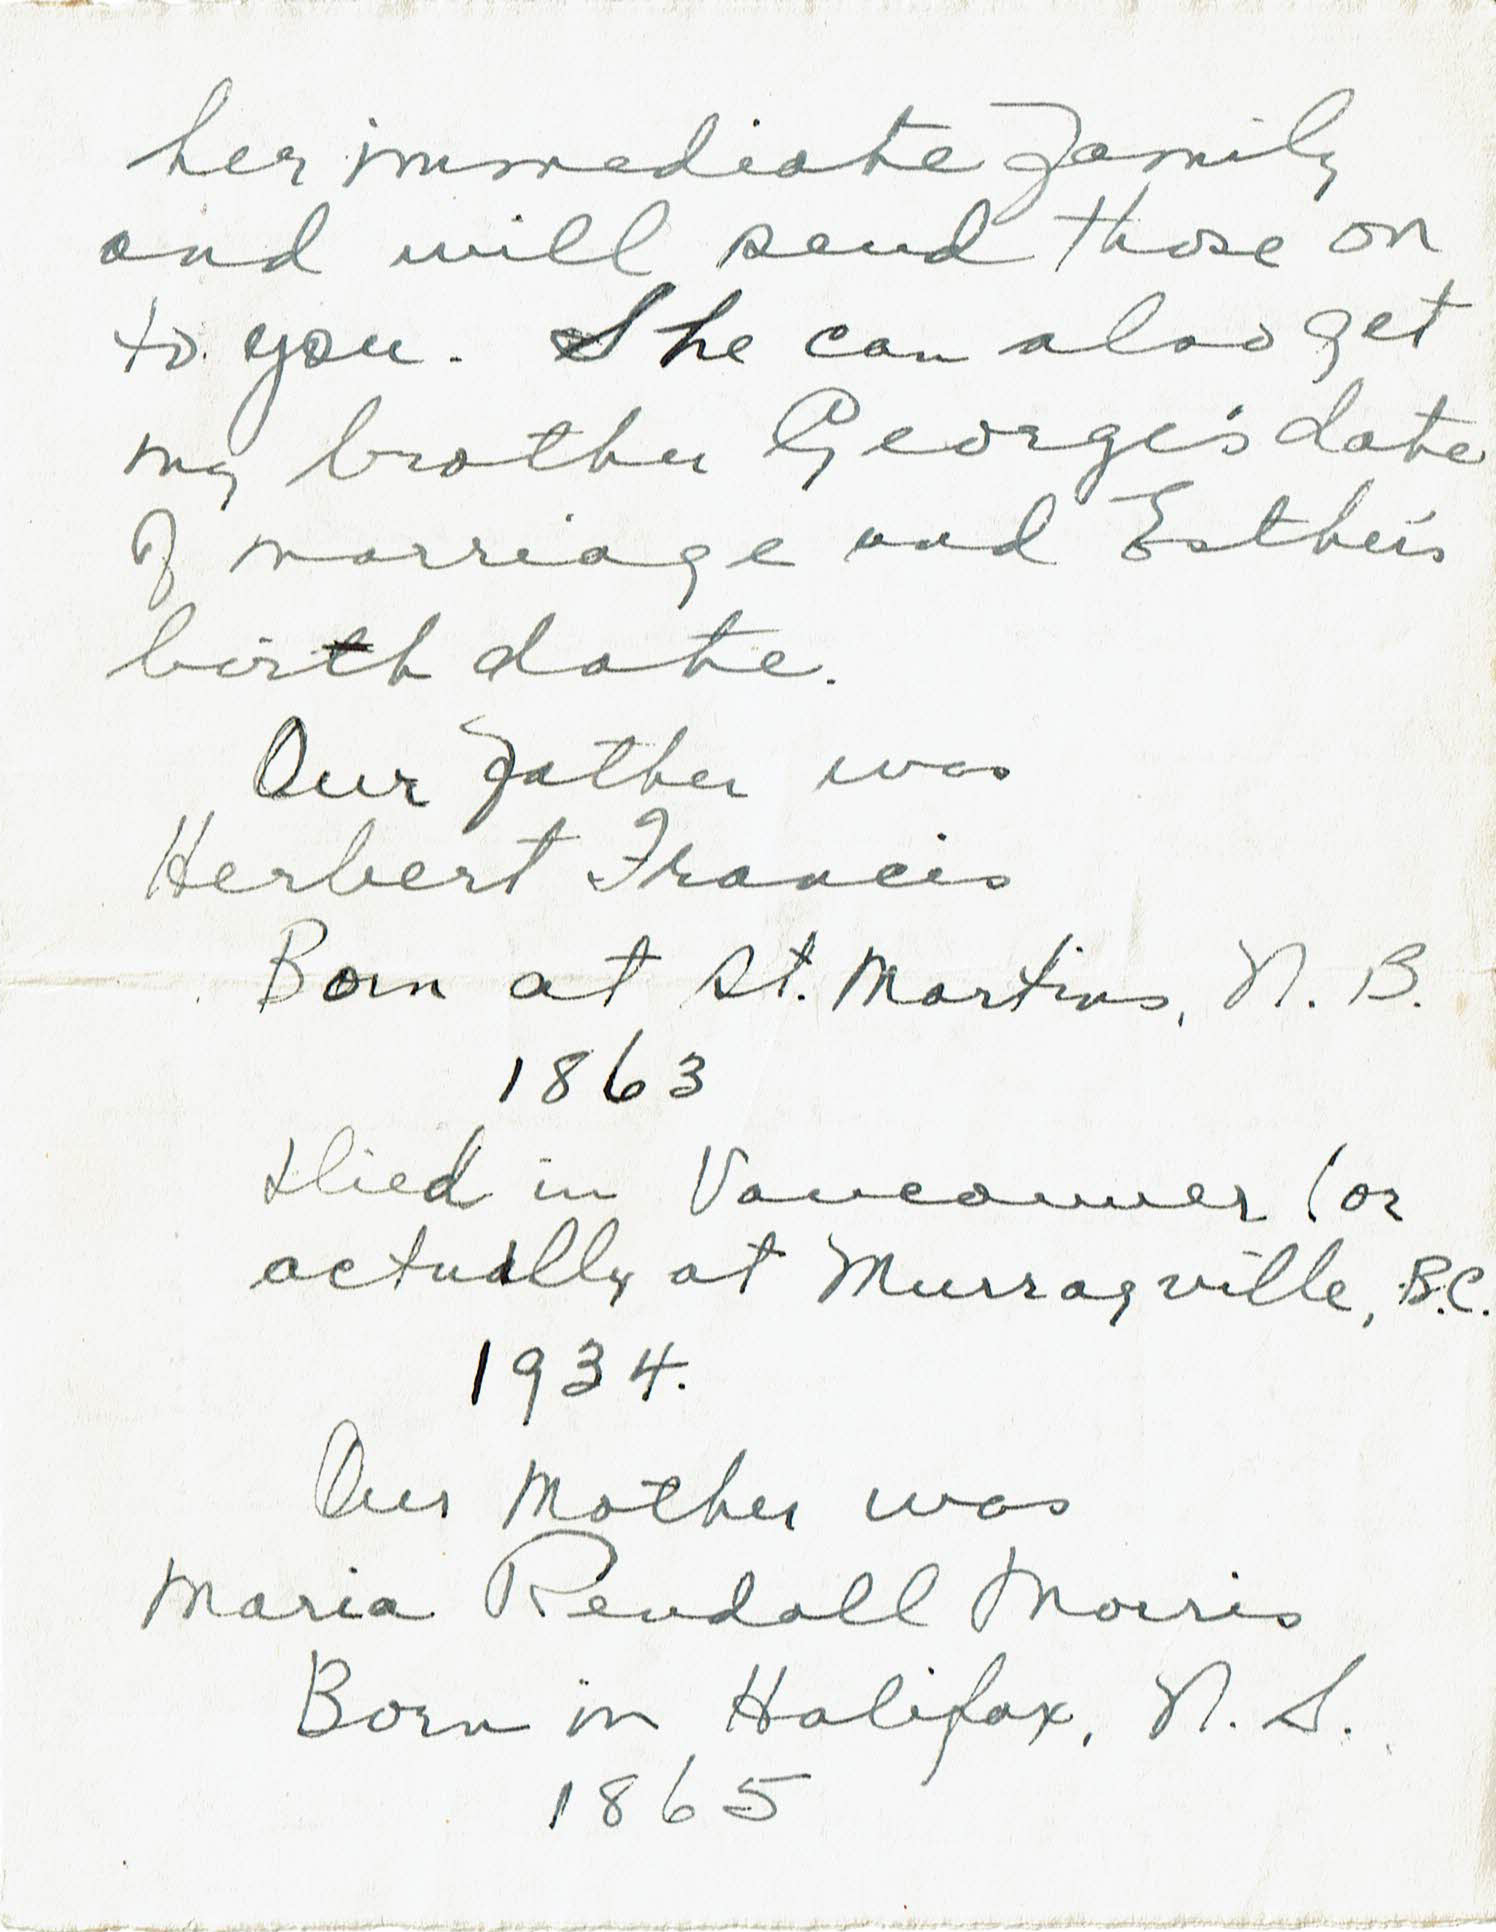 her immediate family
and will send those on
to you. She can also get
my brother George's date
of marriage and Esther's
birth date.
Our father was
Herbert Francis
Born at St. Martins, N. B.
1863
Died in Vancouver (or
actually at Murrayville, B.C.
1934.
Our Mother was
Maria Rendall Morris
Born in Halifax, N. S.
1865